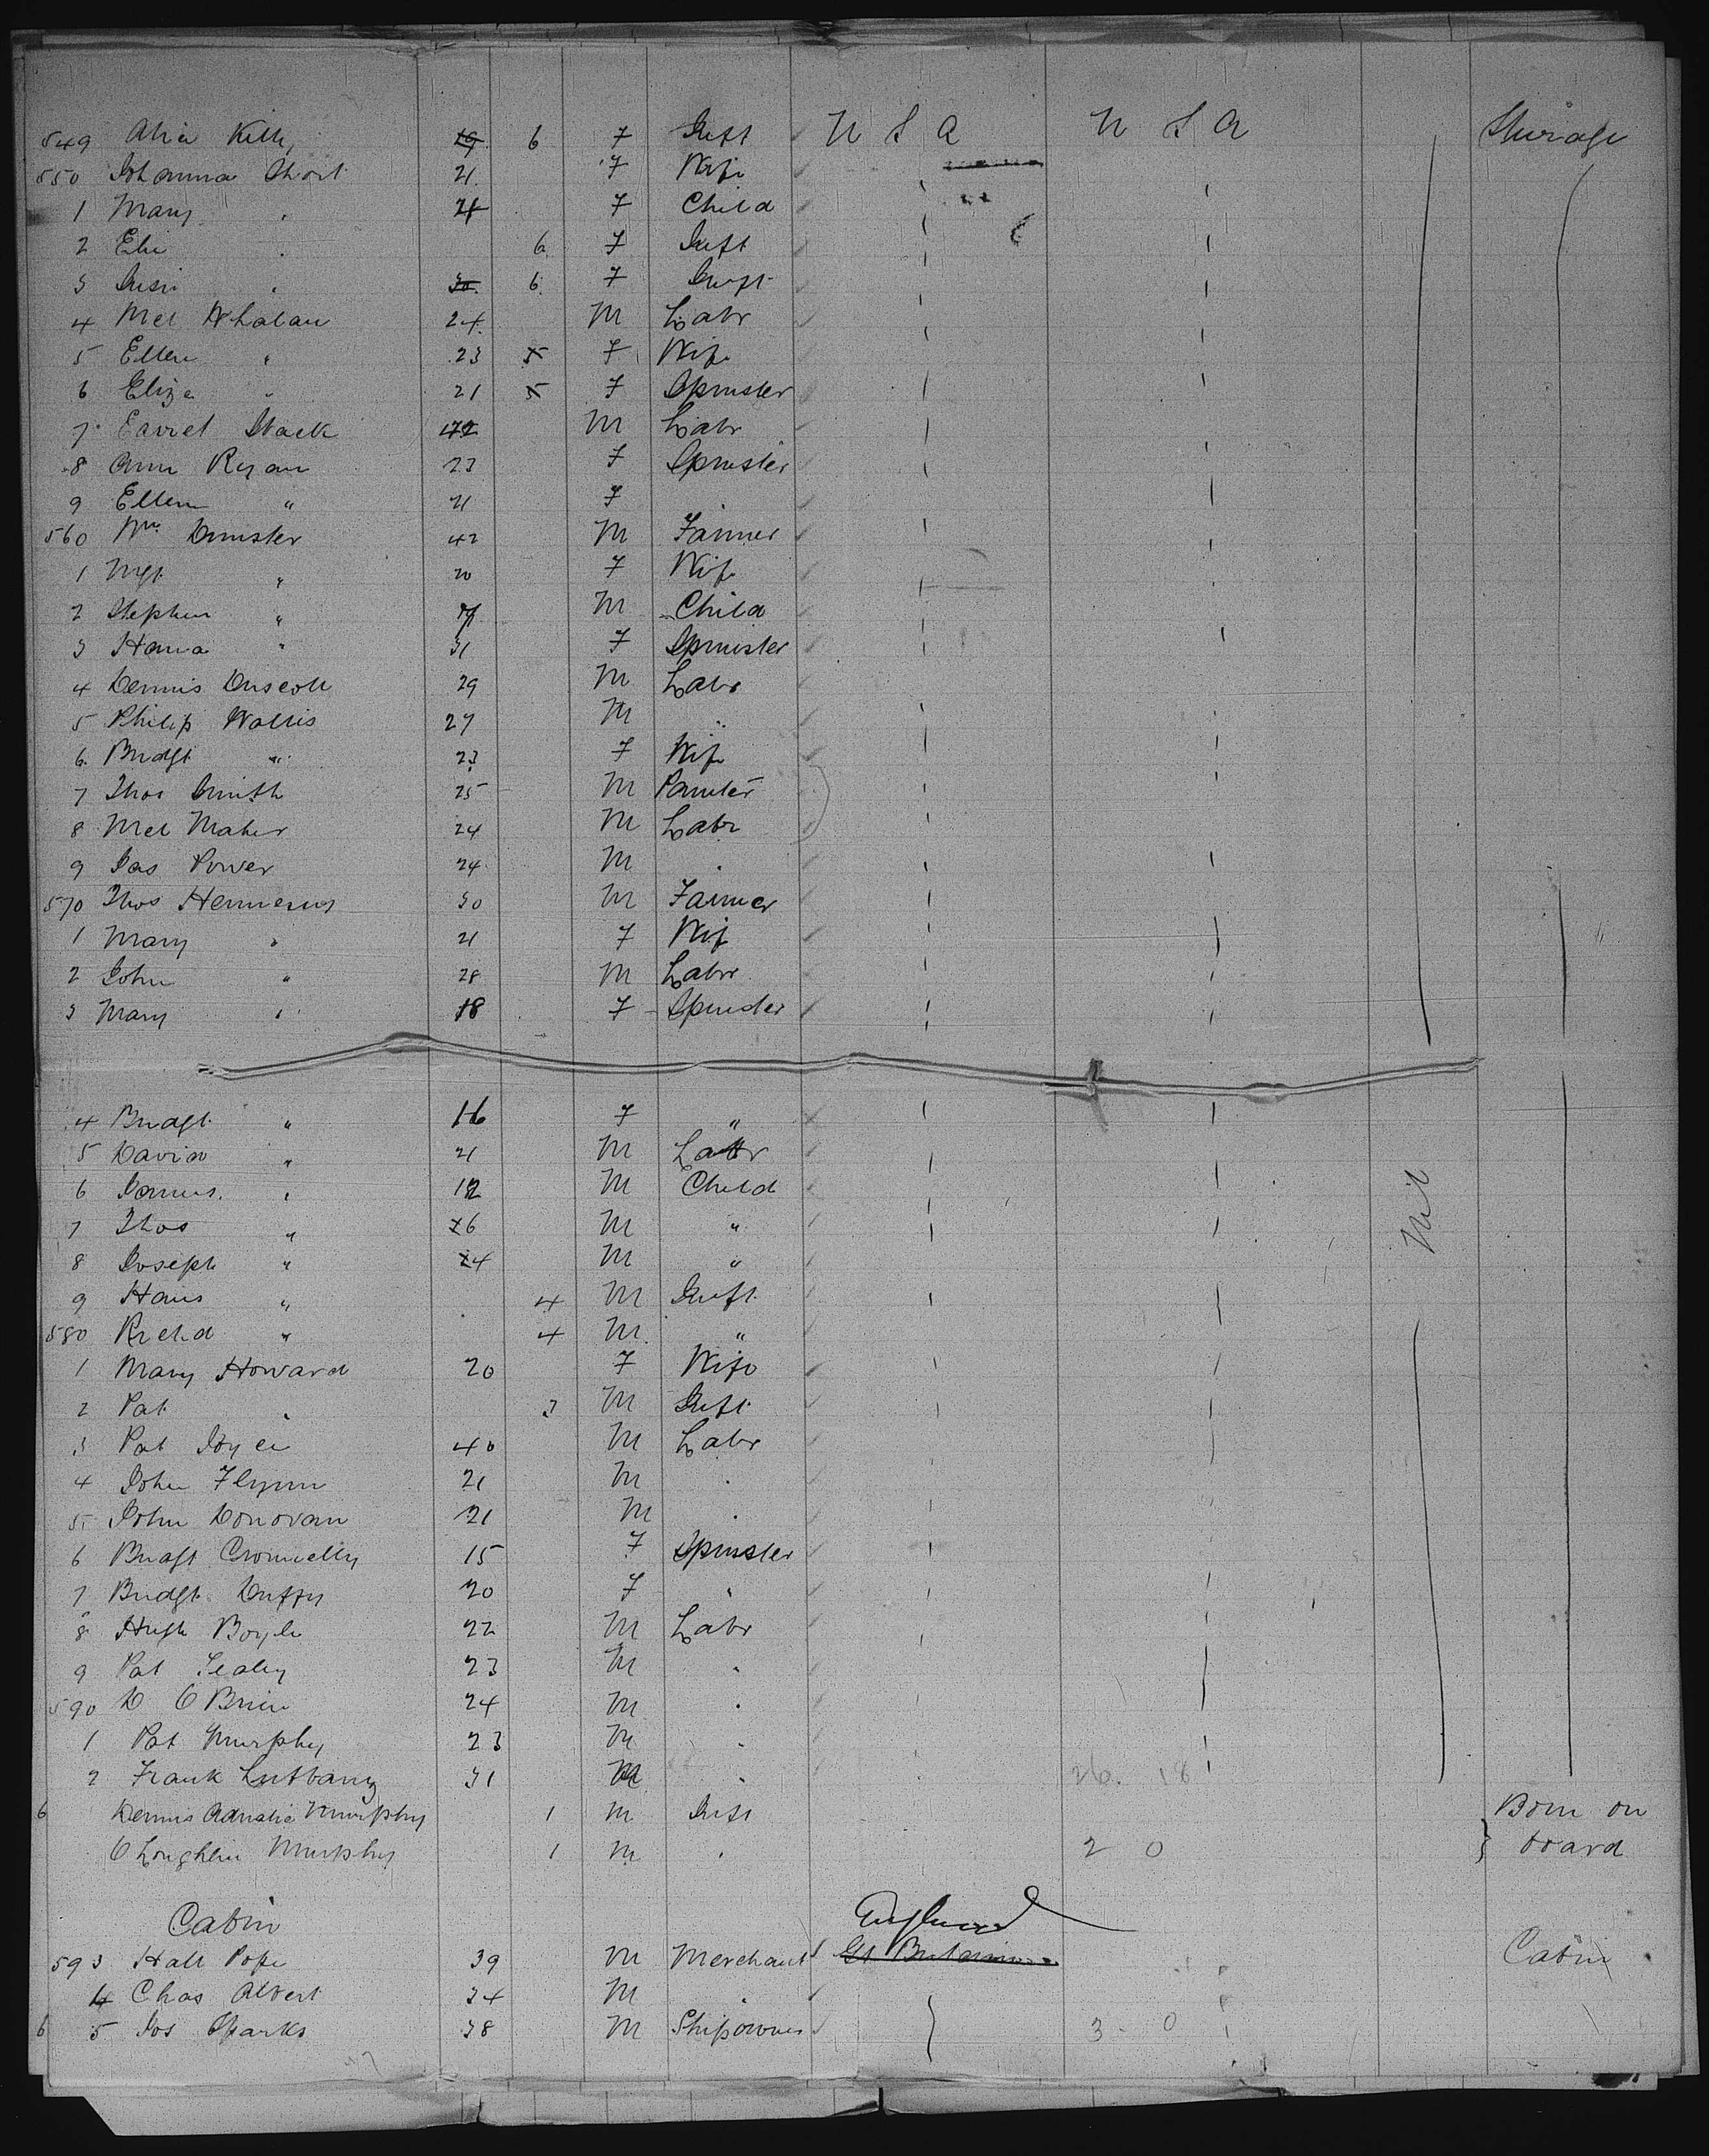 549 Alice Kelly 19 6 F Inft U S A U S A Steerage
550 Johanna Short 21 F Wife
1 Mary " 4 F Child
2 Eliz " 6 F Inft
3 Susie " 30 6 F Inft
4 Mcl Whalan 24 M Labr
5 Ellen " 23 F Wife
6 Eliza " 21 F Spinster
7 Garret Stack 42 M Labr
8 Ann Ryan 23 F Spinster
9 Ellen " 21 F
560 Wm Dunster 42 M Farmer
1 Mgt " 20 F Wife
2 Stephen " M Child
3 Hana " 31 F Spinster
4 Dennis Driscoll 29 M Labr
5 Philip Wallis 27 M "
6 Bridgt " 23 F Wife
7 Thos Smith 25 M Painter
8 Mcl Maher 24 M Labr
9 Jas Power 24 M "
570 Thos Hennessy 30 M Farmer
1 Mary " 21 F Wife
2 John " 28 M Labr
3 Mary " 18 F Spinster
4 Bridgt " 16 F "
5 David " 21 M Labr
6 James " 12 M Child
7 Thos " 6 M "
8 Joseph " 4 M " Nil
9 Hans " 4 M Inft
580 Richd " 4 M "
1 Mary Howard 20 F Wife
2 Pat " 3 M Inft
3 Pat Joyce 40 M Labr
4 John Flynn 21 M "
5 John Donovan 21 M "
6 Bridgt Cronnelly 15 F Spinster
7 Bridgt Duffy 20 F "
8 Hugh Boyle 22 M Labr
9 Pat Sealy 23 M "
590 D O Brien 24 M "
1 Pat Murphy 23 M "
2 Frank 31 M " 26. 18
6 Dennis Adriatic Murphy 1 M Inft Born on
O Loughlin Murphy 1 M " 2 0 board
Cabin England
593 Hall Pope 39 M Merchant Gt Britain Cabin
4 Chas Albert 34 M "
6 5 Jos Sparks 38 M Shipowner 3 - 0